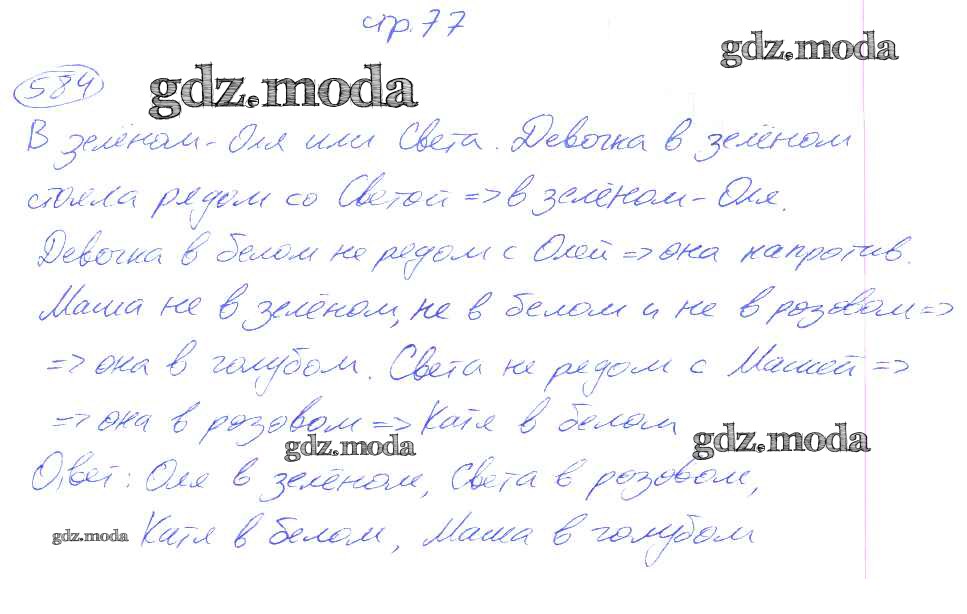 стр. 77
gdz.moda
584
gdz.moda
В зелёном - Оля или Света. Девочка в зелёном
стояла рядом со Светой => в зелёном - Оля.
Девочка в белом не рядом с Олей => она напротив.
Маша не в зелёном, не в белом и не в розовом =>
=> она в голубом. Света не рядом с Машей =>
=> она в розовом => Катя в белом
gdz.moda
gdz.moda
Ответ: Оля в зелёном, Света в розовом,
gdz.moda
Катя в белом, Маша в голубом